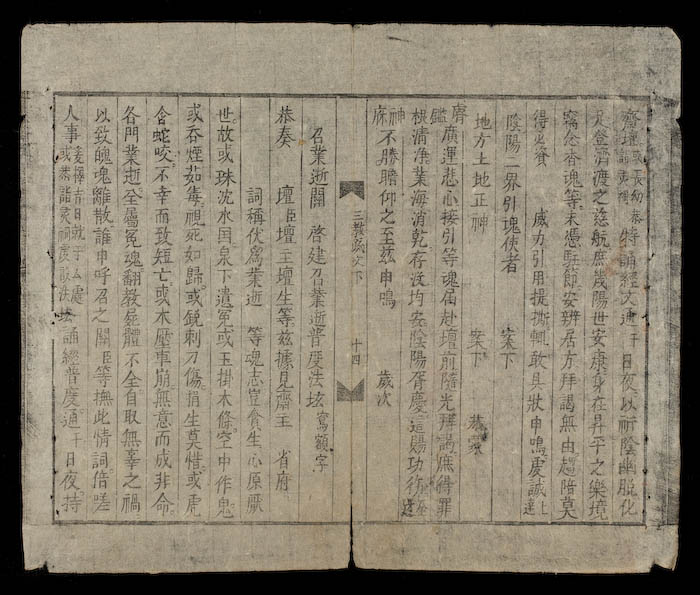 齋壇或長幼恭詣寛祠特誦經文通干日夜以祈陰幽脫化
足登濟渡之慈航庶幾陽世安康身在昇平之樂境
竊念香魂等未憑馭節安辨居方拜謁無由趨陪莫
得必資 威力引用提撕輒敢具狀申鳴虔誠上達
陰陽一界引魂使者 案下
地方土地正神 案下 恭望
膺鑑廣運悲心接引等魂届赴壇前隨光拜謁庶得罪
根清淨業海消乾存沒均安陰陽胥慶迄賜功
神庥不勝瞻仰之至兹申鳴 歲次
三教文下 十四
召業逝關 啓建召業逝普度法坛寫額字
恭奏 壇臣壇主壇生等兹據見齋主 省府
詞稱伏為業逝 等魂志豈貪生心原厭
世故或珠沈水国泉下遺冤或玉掛木條空中作鬼
或吞煙茹毒視死如歸或銳刺刀傷捐生莫惜或虎
含蛇咬不幸而致短亡或木壓車崩無意而成非命
各門業逝全屬冤魂翻教屍體不全自取無辜之禍
以致魄魂離散誰申呼召之關臣等撫此情詞倍嗟
人事爰擇吉日就于厶處或恭詣寛祠虔設法坛誦經普度通干日夜持